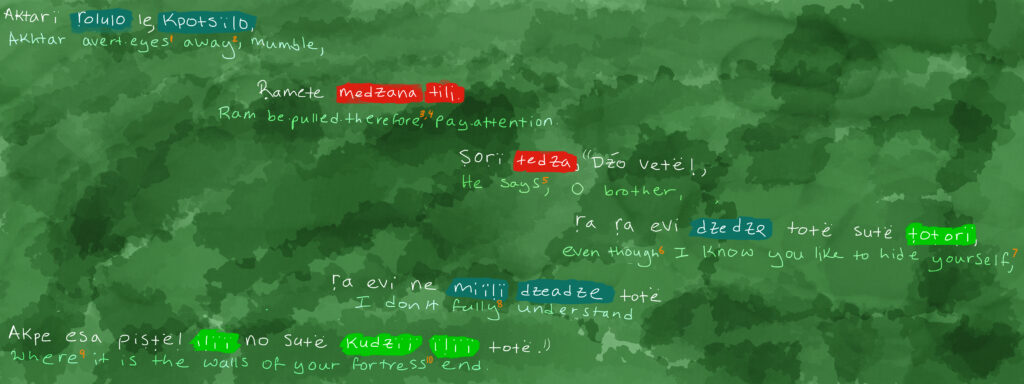 Aktari ṛolulo le, kpotsilo,
Akhtar avert.eyes¹ away², mumble,
Ṛamete medzana tili.
Ram be.pulled.therefore,³·⁴ pay.attention.
Ṣori tedza, "Dẓo vetë!,
He says⁵, O brother,
ṛa ṛa evi dzedze totë sutë ṭotorïï,
even though⁶ I know you like to hide yourself,⁷
ṛa evi ne miïlï dzeadze totë
I don't fully⁸ understand
Akpe esa pistël ilïï no sutë kudzïï ilïï totë."
Where⁹ it is the walls of your fortress¹⁰ end.